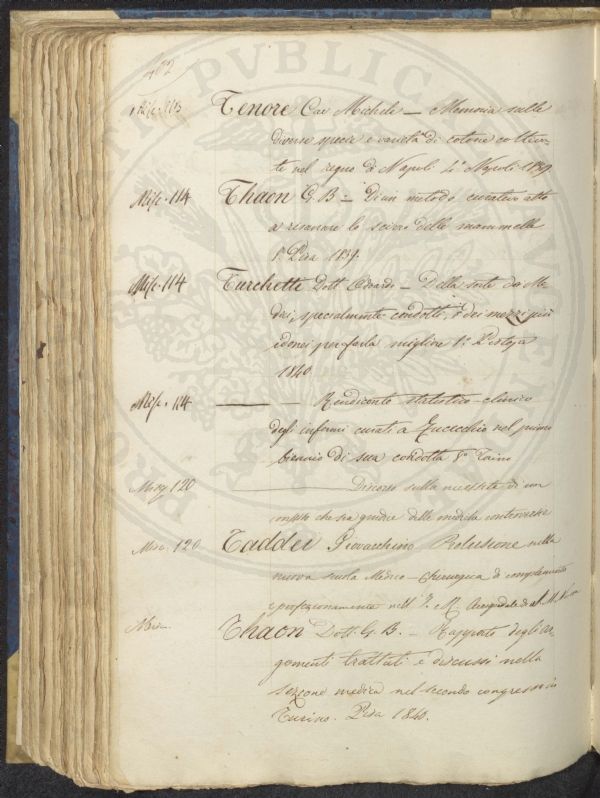 402
Misc. 113 Tenore Cav Michele — Memoria sulle
diverse specie e varietà di cotone coltiva-
te nel regno di Napoli 4° Napoli 1839
Misc. 114 Thaon G. B. — Di un metodo curativo atto
a risanare lo scirro delle mammelle
8° Pisa 1839.
Misc. 114 Turchetti Dott. Odoardo — Della sorte dei Me-
dici, specialmente condotti, e dei mezzi più
idonei per farla migliore 8° Pistoja
1840
Misc. 114 ——— Rendiconto statistico-clinico
degli infermi curati a Fucecchio nel primo
biennio di sua condotta 8° Torino
Misc 120 ——— Discorso sulla necessità di un
che sia giudice delle mediche controversie
Misc. 120 Taddei Giovacchino Prolusione nella
nuova scuola Medico-Chirurgica di complemento
e perfezionamento nell' I. R. Arcispedale di S. M. N.
Misc. Thaon Dott. G. B. — Rapporto degli ar-
gomenti trattati e discussi nella
sezione medica nel secondo congresso in
Turino. Pisa 1840.